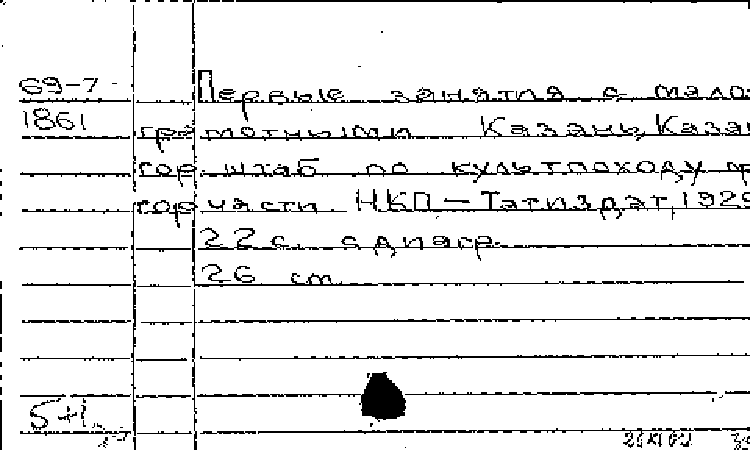 69-7
1861
Первые занятия с мало-
грамотными Казань, Казан.
гор. штаб по культпоходу пр
гор части НКП – Татиздат, 1929
22 с. с диагр.
26 см.
5+1.